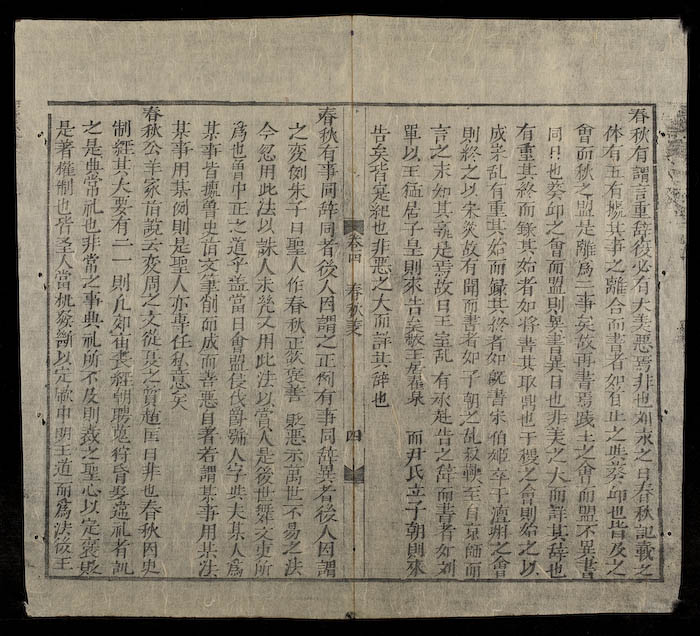 春秋有謂言重辞復必有大美惡焉非也如永之曰春秋記載之
体有五有㨿其事之離合而書者如首止之與葵丘也皆及之
會而秋之盟是離爲二事矣故再書焉践土之會而盟不異書
同日也葵丘之會而盟則異書異日也非美之大而詳其辞也
有重其終而錄其始者如將書其取鼎也于稷之會則始之以
成宋乱有重其始而錄其終者如旣書宋伯姬卒于澶渊之會
則終之以宋灾故有聞而書者如子朝之乱叔鞅至自京師而
言之未知其義是焉故曰王室乱有承赴告之辞而書者如刘
單以王猛居于皇則來告矣敬王居狄泉而尹氏立子朝則來
告矣皆寔紀也非惡之大而詳其辞也
卷四 春秋叐 四
春秋有事同辞同者後人因謂之正例有事同辞異者後人因謂
之变例朱子曰聖人作春秋正欲褒善貶惡示萬世不易之法
今忽用此法以誅人未㡬又用此法以賞人是後世舞文吏所
爲也曾中正之道乎盖當日會盟侵伐爵號人字與夫某人爲
某事皆㨿魯史旧文筆削而成而善惡自者若謂某事用某法
某事用某例則是聖人亦專任私意矣
春秋公羊家旧説云変周之文從殷之質趙匡曰非也春秋因史
制經其大要有二一則凡郊庙丧經朝聘蒐狩昏娶違礼者訊
之是典常礼也非常之事典礼所不及則裁之聖心以定褒貶
是著權制也皆圣人當机發断以定厥中明王道而爲法後王